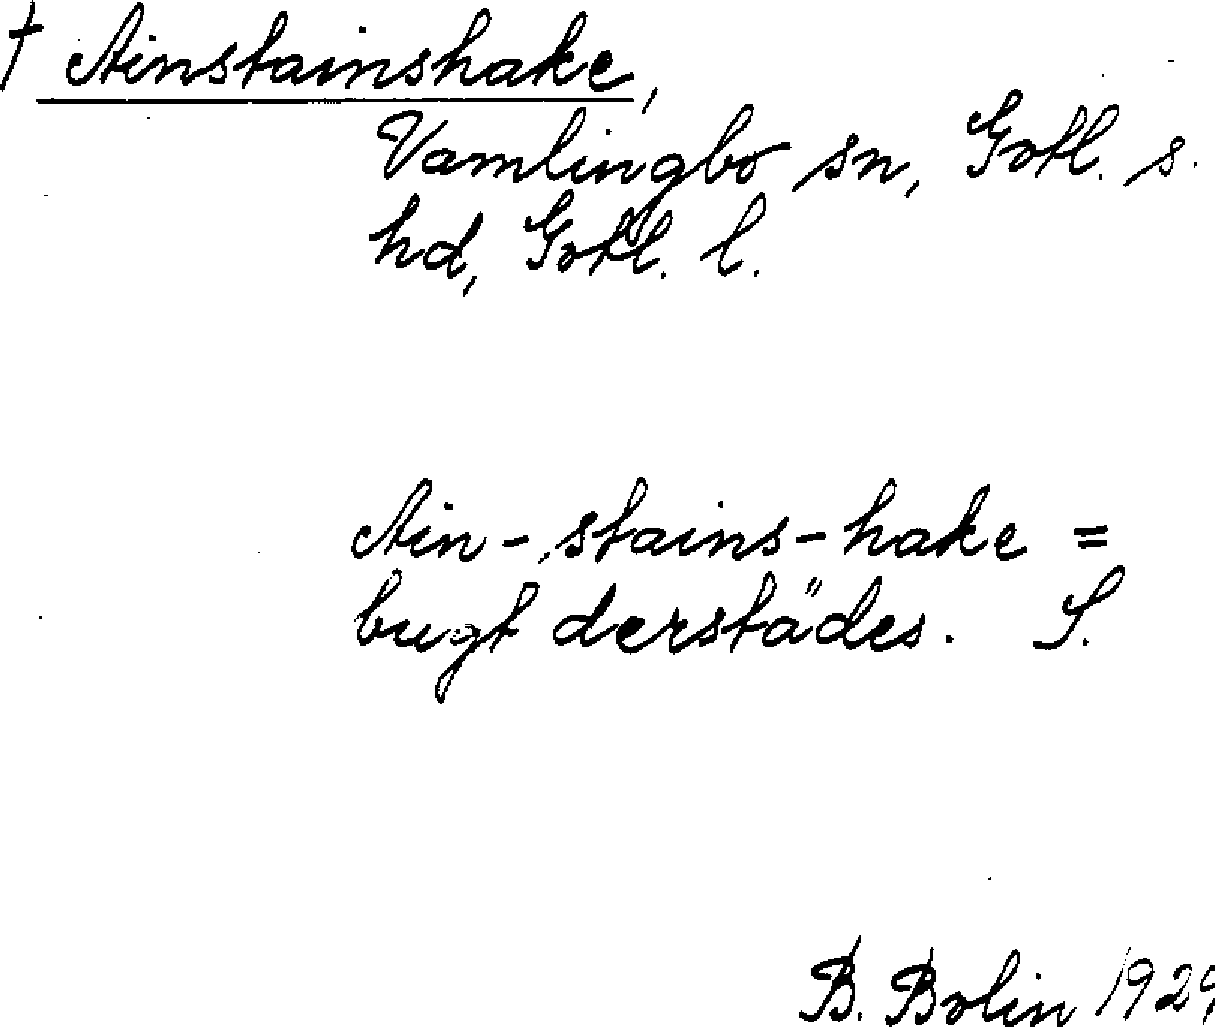 † Ainstainshake,
Vamlingbo sn, Gotl. s.
hd, Gotl. l.
Ain-stains-hake =
bugt derstädes. S.
B. Bolin 1929